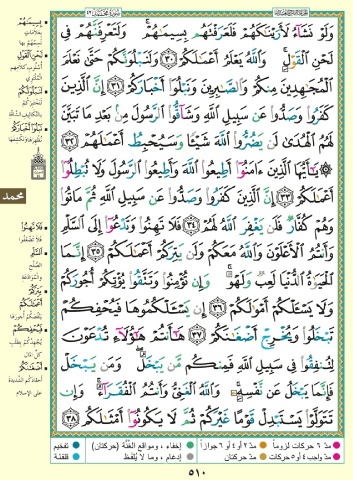 سورة محمد ٤٧
وَلَوْ نَشَآءُ لَأَرَيْنَٰكَهُمْ فَلَعَرَفْتَهُم بِسِيمَٰهُمْ ۚ وَلَتَعْرِفَنَّهُمْ فِى
لَحْنِ ٱلْقَوْلِ ۚ وَٱللَّهُ يَعْلَمُ أَعْمَٰلَكُمْ ٣٠ وَلَنَبْلُوَنَّكُمْ حَتَّىٰ نَعْلَمَ
ٱلْمُجَٰهِدِينَ مِنكُمْ وَٱلصَّٰبِرِينَ وَنَبْلُوَا۟ أَخْبَارَكُمْ ٣١ إِنَّ ٱلَّذِينَ
كَفَرُوا۟ وَصَدُّوا۟ عَن سَبِيلِ ٱللَّهِ وَشَآقُّوا۟ ٱلرَّسُولَ مِنۢ بَعْدِ مَا تَبَيَّنَ
لَهُمُ ٱلْهُدَىٰ لَن يَضُرُّوا۟ ٱللَّهَ شَيْـًٔا وَسَيُحْبِطُ أَعْمَٰلَهُمْ ٣٢
يَٰٓأَيُّهَا ٱلَّذِينَ ءَامَنُوٓا۟ أَطِيعُوا۟ ٱللَّهَ وَأَطِيعُوا۟ ٱلرَّسُولَ وَلَا تُبْطِلُوٓا۟
أَعْمَٰلَكُمْ ٣٣ إِنَّ ٱلَّذِينَ كَفَرُوا۟ وَصَدُّوا۟ عَن سَبِيلِ ٱللَّهِ ثُمَّ مَاتُوا۟
وَهُمْ كُفَّارٌ فَلَن يَغْفِرَ ٱللَّهُ لَهُمْ ٣٤ فَلَا تَهِنُوا۟ وَتَدْعُوٓا۟ إِلَى ٱلسَّلْمِ
وَأَنتُمُ ٱلْأَعْلَوْنَ وَٱللَّهُ مَعَكُمْ وَلَن يَتِرَكُمْ أَعْمَٰلَكُمْ ٣٥ إِنَّمَا
ٱلْحَيَوٰةُ ٱلدُّنْيَا لَعِبٌ وَلَهْوٌ ۚ وَإِن تُؤْمِنُوا۟ وَتَتَّقُوا۟ يُؤْتِكُمْ أُجُورَكُمْ
وَلَا يَسْـَٔلْكُمْ أَمْوَٰلَكُمْ ٣٦ إِن يَسْـَٔلْكُمُوهَا فَيُحْفِكُمْ
تَبْخَلُوا۟ وَيُخْرِجْ أَضْغَٰنَكُمْ ٣٧ هَٰٓأَنتُمْ هَٰٓؤُلَآءِ تُدْعَوْنَ
لِتُنفِقُوا۟ فِى سَبِيلِ ٱللَّهِ فَمِنكُم مَّن يَبْخَلُ ۖ وَمَن يَبْخَلْ
فَإِنَّمَا يَبْخَلُ عَن نَّفْسِهِۦ ۚ وَٱللَّهُ ٱلْغَنِىُّ وَأَنتُمُ ٱلْفُقَرَآءُ ۚ وَإِن
تَتَوَلَّوْا۟ يَسْتَبْدِلْ قَوْمًا غَيْرَكُمْ ثُمَّ لَا يَكُونُوٓا۟ أَمْثَٰلَكُم ٣٨
بِسِيمَٰهُمْ
بعلامات
نسمهم بها
لَحْنِ ٱلْقَوْلِ
لَنَبْلُوَنَّكُمْ
بالتكاليف الشاقة
نَبْلُوَا۟ أَخْبَارَكُمْ
نظهرها ونكشفها
محمد
فَلَا تَهِنُوا۟
فلا تضعفوا
ٱلسَّلْمِ
الصلح
يَتِرَكُمْ أَعْمَٰلَكُمْ
ينقصكم أجورها
فَيُحْفِكُمْ
يجهدكم بطلب
كل المال
أَضْغَٰنَكُمْ
أحقادكم الشديدة
على الإسلام
مدّ ٦ حركات لزوماً
مدّ ٢ أو ٤ أو ٦ جوازاً
إخفاء، ومواقع الغنّة (حركتان)
تفخيم
مدّ واجب ٤ أو ٥ حركات
مدّ حركتان
إدغام، وما لا يُلفظ
قلقلة
٥١٠